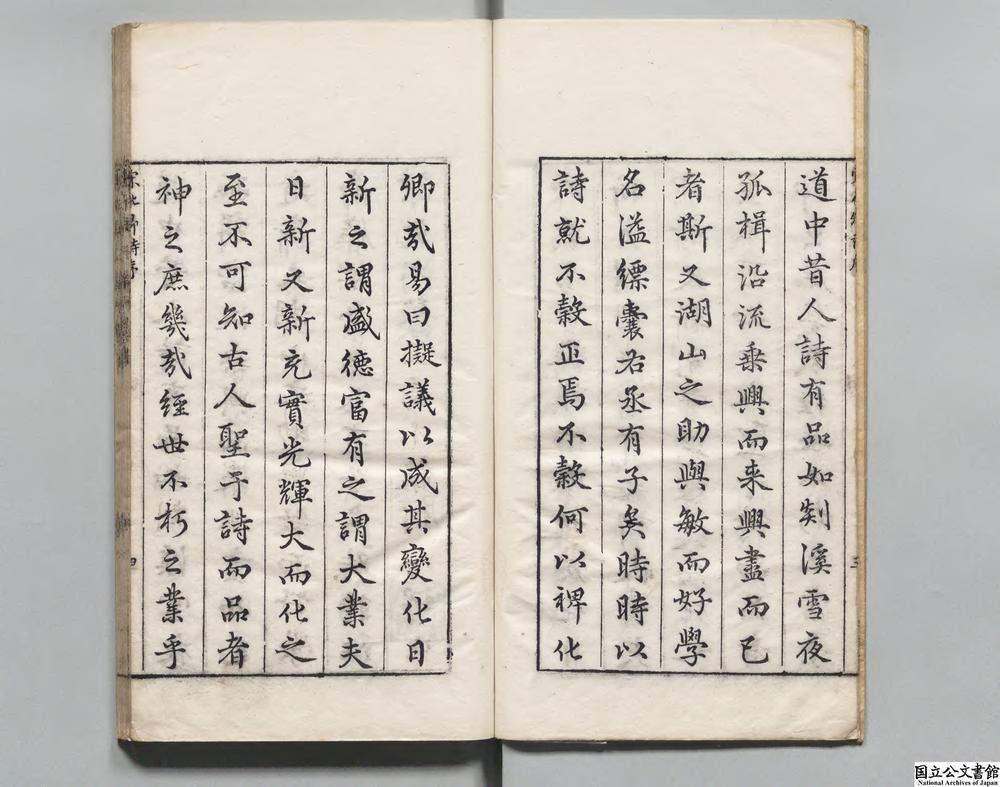 道中昔人詩有品如剡溪雪夜
孤楫沿流乗興而来興盡而已
者斯又湖山之助與敏而好學
名溢縹囊右丞有子矣時時以
詩就不穀正焉不穀何以裨化
卿哉易曰擬議以成其變化日
新之謂盛德富有之謂大業夫
日新又新充實光輝大而化之
至不可知古人聖于詩而品者
神之庶幾哉經世不朽之業乎
四
国立公文書館
National Archives of Japan